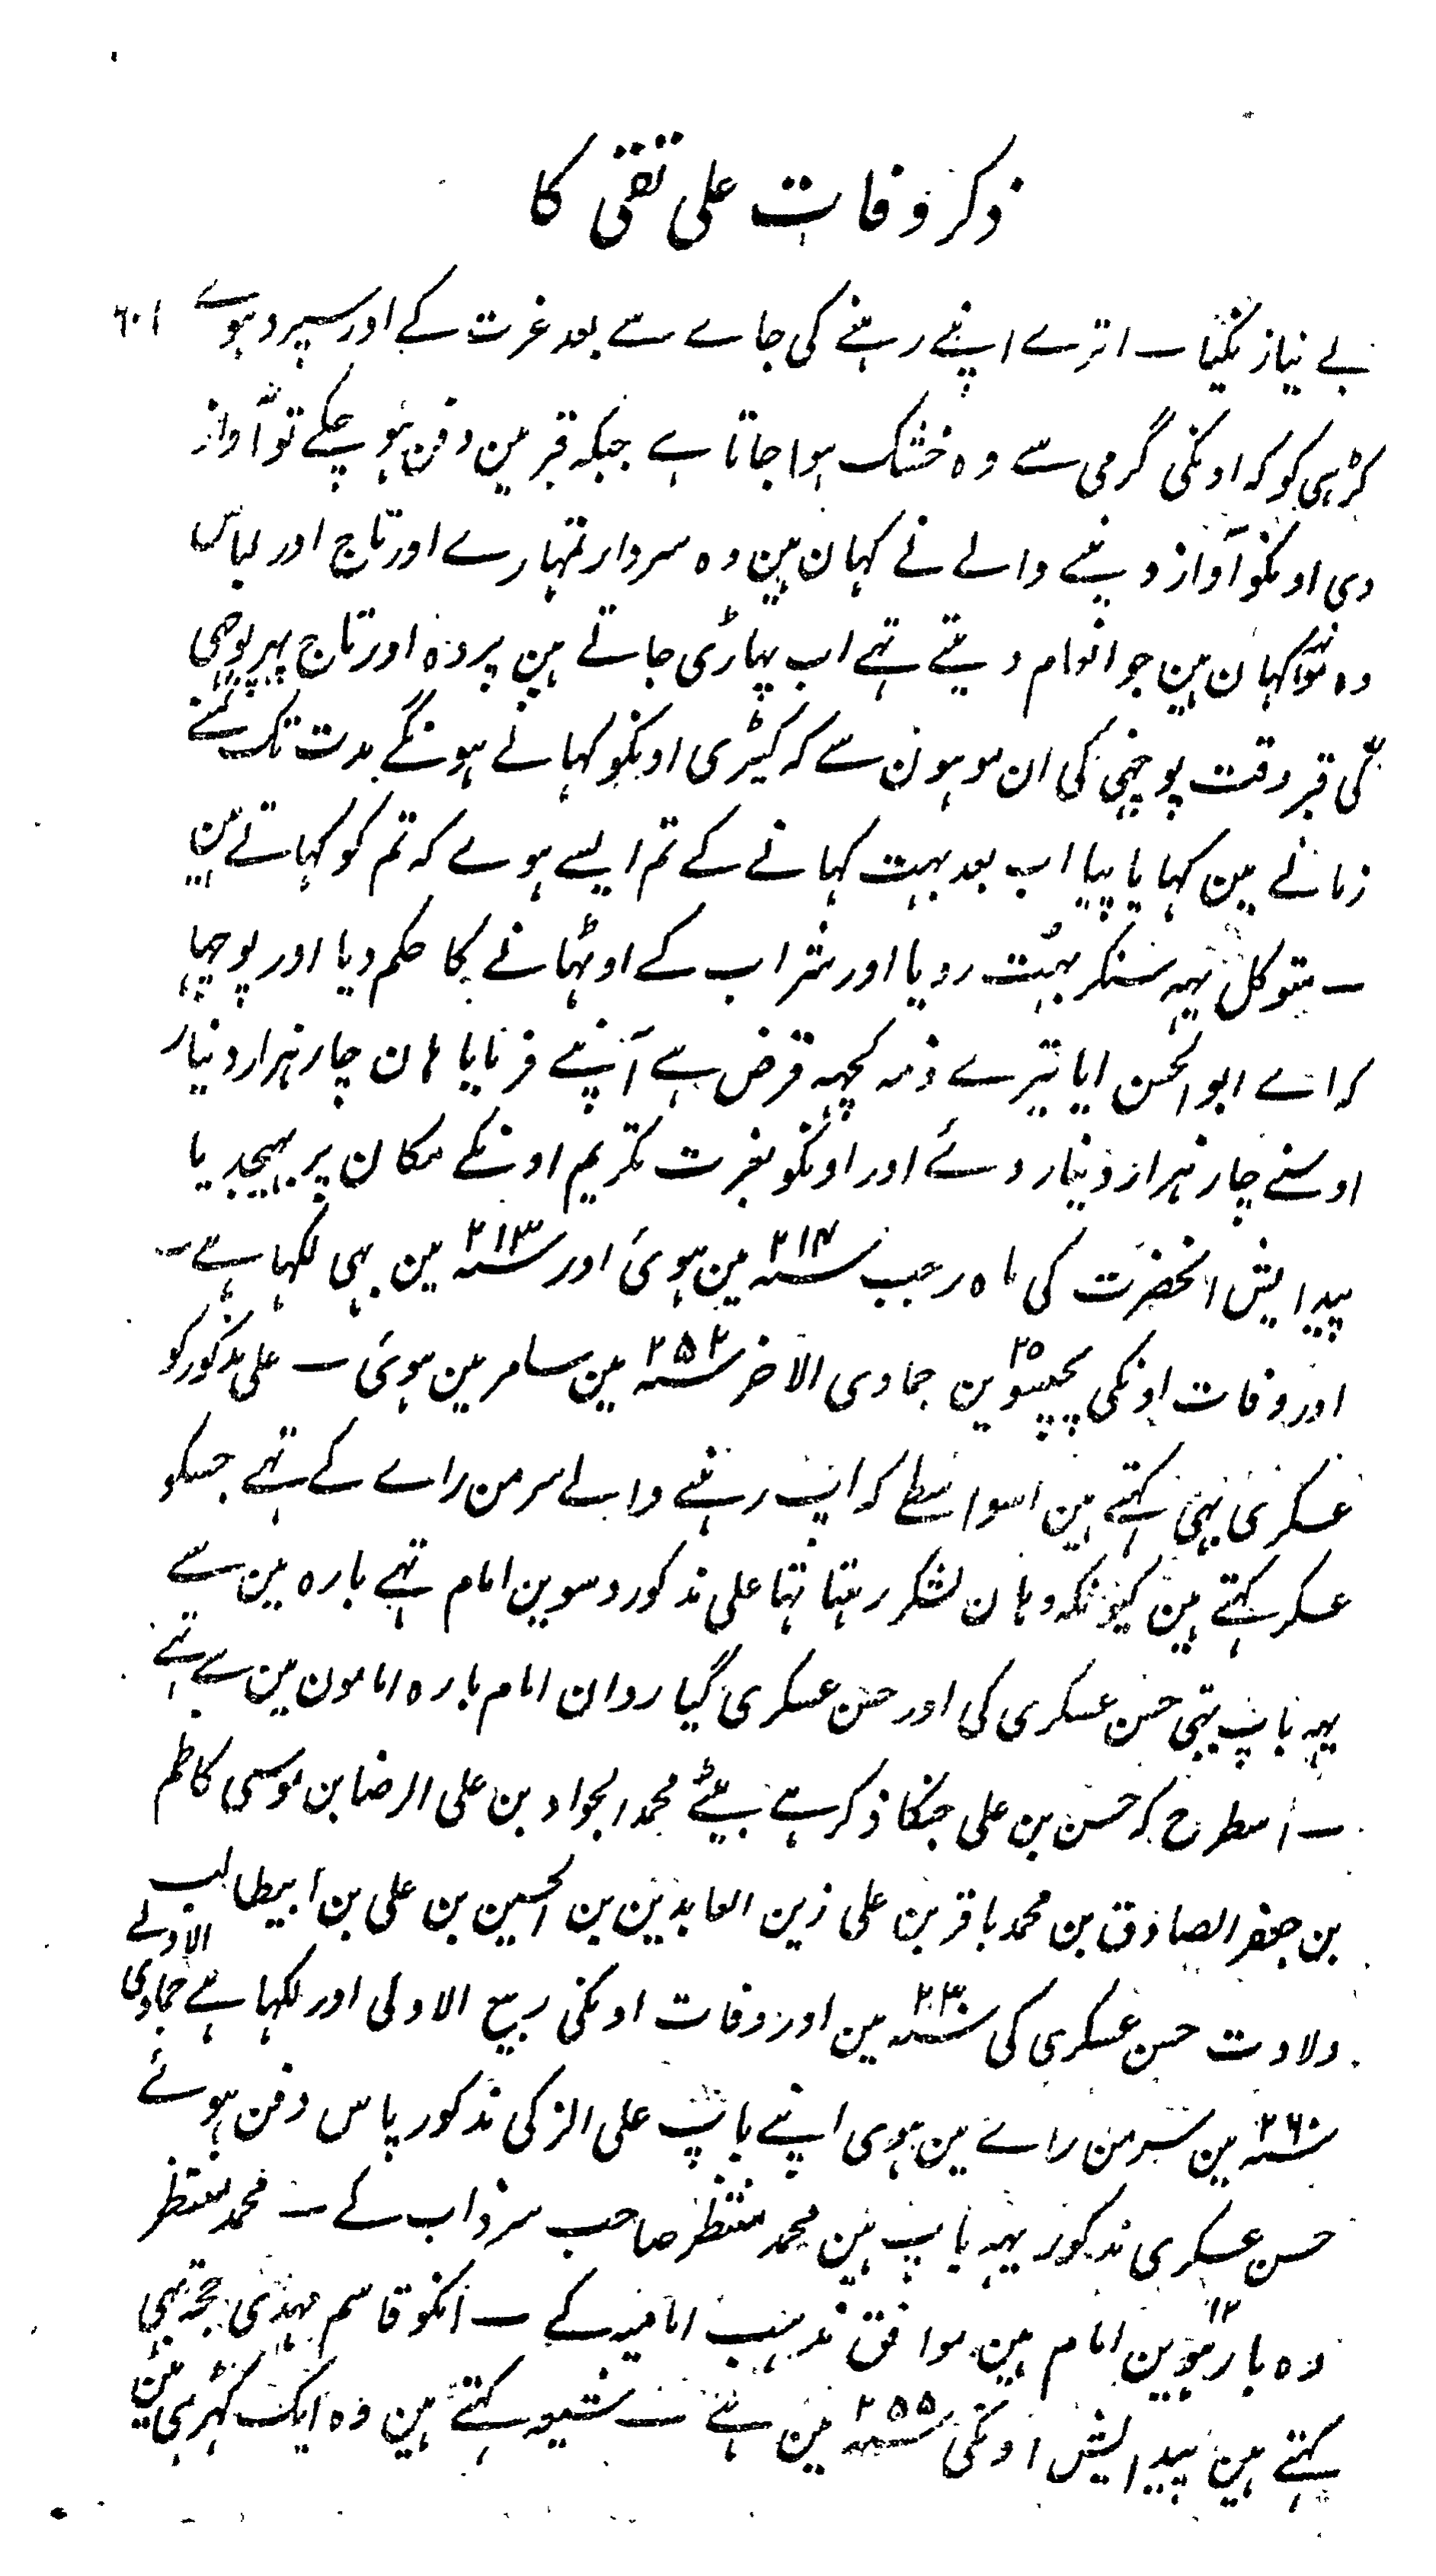 ذکر وفات علی تقی کا
۶۰۱
بے نیاز نگیا ۔ اترے اپنے رہنے کی جاے سے بعد عزت کے اور سپرد ہوے
گڑہی کو کہ اونکی گرمی سے وہ خشک ہوا جاتا ہے جبکہ قبر مین دفن ہو چکے تو آواز
دی اونکو آواز دینے والے نے کہان ہین وہ سردار تمہارے اور تاج اور لباس
وہ کہان ہین جو انعام دیتے تہے اب پہاڑی جاتے ہین پردہ اور تاج پہر پوچہی
گی قبر وقت پوچہنی کی ان موہون سے کہ کیڑی اونکو کہاتے ہونگے مدت تک کتنے
زمانے مین کہایا پیا اب بعد بہت کہانے کے تم ایسے ہوے کہ تم کو کہاتے ہین
۔ متوکل یہہ سنکر بہت رویا اور شراب کے اوٹہانے کا حکم دیا اور پوچہا
کہ اے ابو الحسن ایا تیرے ذمہ کچہہ قرض ہے آپنے فرمایا ہان چار ہزار دینار
اوسنے چار ہزار دینار دئے اور اونکو بعزت تکریم اونکے مکان پر بہیجدیا
پیدایش انحضرت کی ماہ رجب سنہ ۲۱۴ مین ہوئی اور سنہ ۲۱۳ مین بہی لکہا ہے ۔
اور وفات اونکی پچیسوین ۲۵ جمادی الاخر سنہ ۲۵۲ مین سامر مین ہوئی ۔ علی مذکور کو
عسکری بہی کہتے ہین اسواسطے کہ آپ رہنے والے سر من راے کے تہے جسکو
عسکر کہتے ہین کیونکہ وہان لشکر رہتا تہا علی مذکور دسوین امام تہے بارہ مین سے
یہہ باپ تہی حسن عسکری کی اور حسن عسکری گیاروان امام بارہ امامون مین سے تہے
۔ اسطرح کہ حسن بن علی جنکا ذکر ہے بیٹے محمد الجواد بن علی الرضا بن موسی کاظم
بن جعفر الصادق بن محمد باقر بن علی زین العابدین بن الحسین بن علی بن ابیطالب
ولادت حسن عسکری کی سنہ ۲۳۰ مین اور وفات اونکی ربیع الاولی اور لکہا ہے جمادی الاولے
سنہ ۲۶۰ مین سرمن راے مین ہوی اپنے باپ علی الزکی مذکور پاس دفن ہوئے
حسن عسکری مذکور یہہ باپ ہین محمد منتظر صاحب سرداب کے ۔ محمد منتظر
وہ بارہوین ۱۲ امام ہین موافق مذہب امامیہ کے ۔ انکو قاسم مہدی حجۃ بہی
کہتے ہین پیدایش اونکی سنہ ۲۵۵ مین ہے ۔ شیعہ کہتے ہین وہ ایک کہڑہی مین